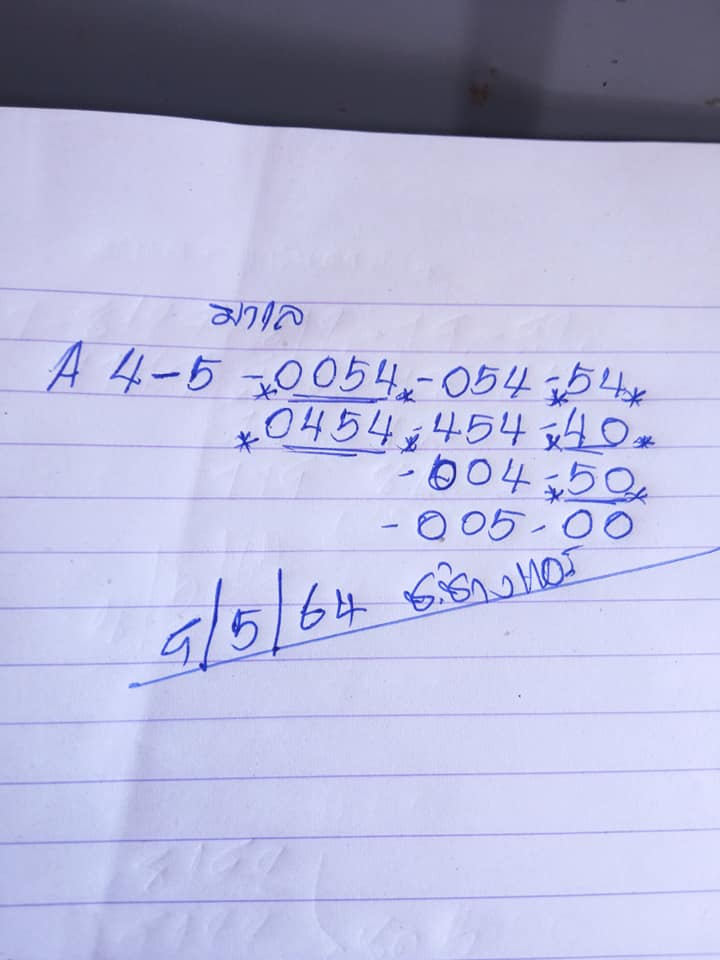 มาเล
A 4-5 -*0054*-054-*54*
*0454-*454-*40*
-004-*50*
-005-00
/5/64